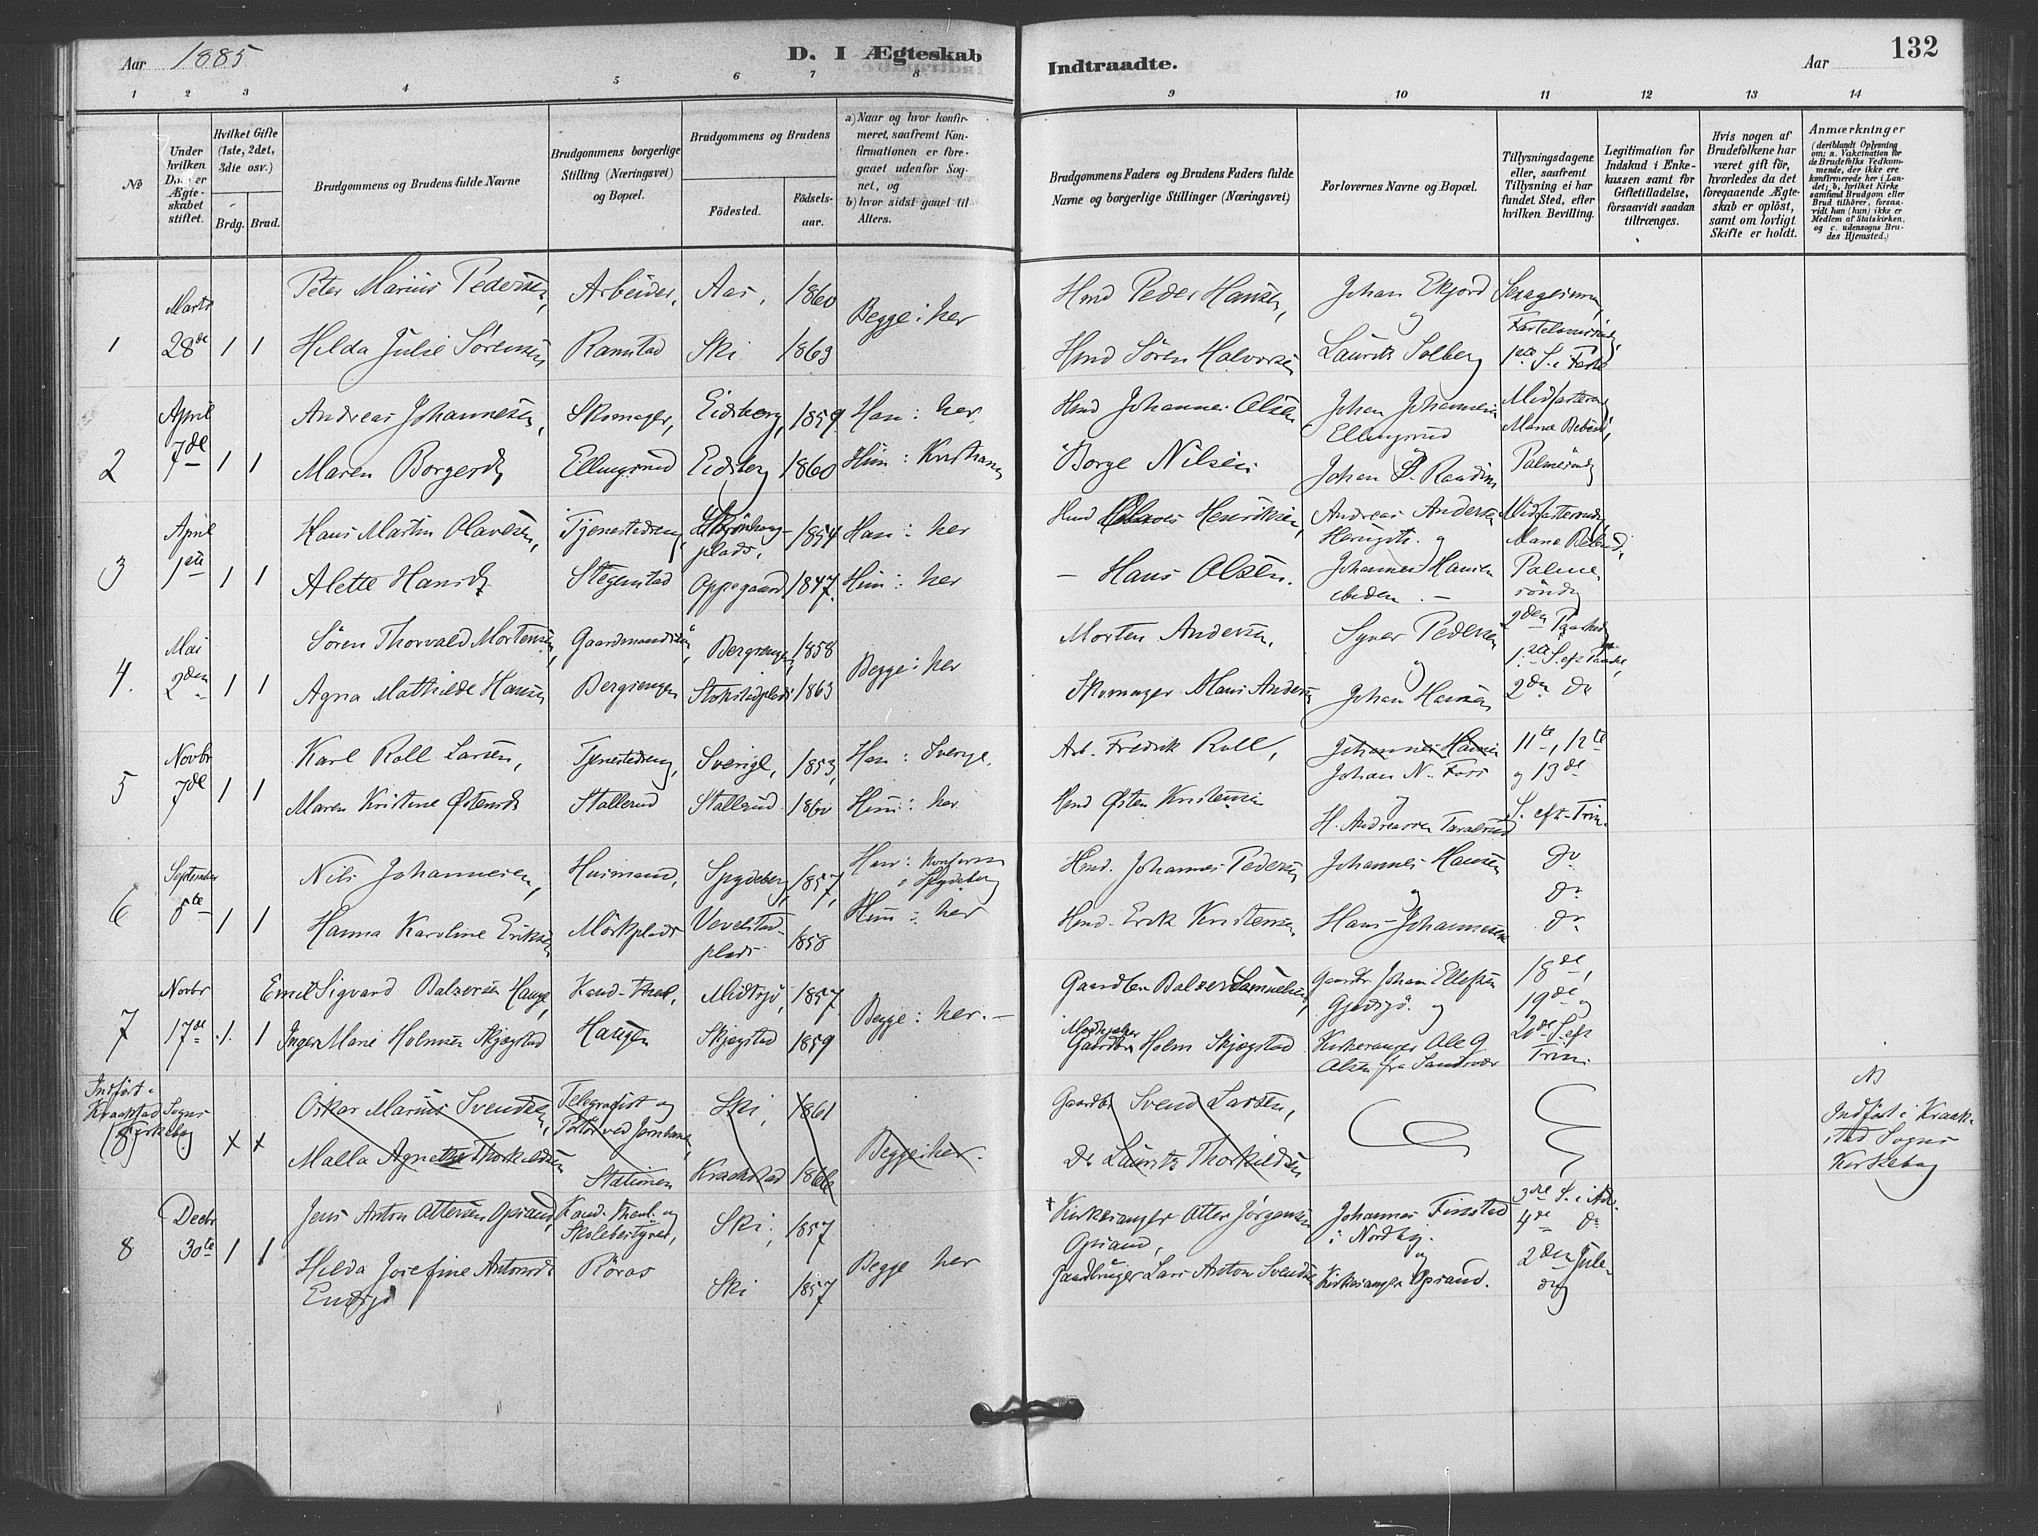 Aar 1885
D. I Ægteskab
Indtraadte.
Aar
132
1 2 3 4 5 6 7 8 9 10 11 12 13 14
No
Under hvilken Ægteskabet stiftet.
Hvilket Gifte (1ste, 2det, 3die osv.)
Brdg. Brud.
Brudgommens og Brudens fulde Navne
Brudgommens borgerlige Stilling (Næringsvei) og Bopæl.
Brudgommens og Brudens
Födested.
Födsels-aar.
a) Naar og hvor konfirmeret, saafremt Konfirmationen er foregaaet udenfor Sognet, og
b) hvor sidst gaaet til Alters.
Brudgommens Faders og Brudens Faders fulde Navne og borgerlige Stillinger (Næringsvei)
Forlovernes Navne og Bopæl.
Tillysningsdagene eller, saafremt Tillysning ei har fundet Sted, efter hvilken Bevilling.
Legitimation for Indskud i Enkekassen samt for Giftetilladelse, forsaavidt saadan tiltrænges.
Hvis nogen af Brudefolkene har været gift før, hvorledes da det foregaaende Ægteskab er oplöst, samt om lovligt Skifte er holdt.
Anmærkninger
(deriblandt Oplysning om: a. Vakcination for de Brudefolks Vedkommende, der ikke ere konfirmerede her i Landet; b. hvilket Kirkesamfund Brudgom eller Brud tilhörer, forsaavidt han (hun) ikke er Medlem af Statskirken, og c. udensogns Brudes Hjemsted.)
1 Marts 28de 1 1
Peter Marius Pedersen, Arbeider, Aas, 1860
Begge: her
Hmd Peder Hansen, Johan Ekjord og Sexagesima,
Hilda Julie Sørensen Ramstad Ski 1863
Hmd Sören Halvorsen Laurits Solberg 1ste S. i Faste
2 April 7de 1 1
Andreas Johannesen, Skomager, Eidsberg, 1859 Han: her.
Hmd Johannes Olsen Johan Johannesen Ellingsrud Midfaste
Maren Borgersd Ellingsrud Eidsberg 1860 Hun: Kristiania
Borge Nilsen Johan Palmesöndg
3 April 1ste 1 1
Hans Martin Olavesen, Tjenestedreng, plads, 1854 Han: her
Hmd Henriksen, Andreas Andersen og Midfastesöndg,
Alette Hansd Stegenstad Oppegaard 1847. Hun: her
– Hans Olsen. Johannes Hansen ibiden. – Palmesöndg
4. Mai 2den 1 1
Søren Thorvald Mortensen, Gaardmandssön, Bergsengen, 1858
Begge: her
Morten Andersen, Syver Pedersen og 2den Paaskedg
Agna Mathilde Hansen Bergsengen 1863
Skomager Hans Andersen Johan Hansen 2den do
5 Novbr 7de 1 1
Karl Roll Larsen, Tjenestedreng, Sverige, 1853, Han: Sverge.
Arb. Fredrik Roll, Johannes Hansen Johan N. Foss og 11te, 12te og 13de
Maren Kristine Østensd Stallerud Stallerud 1860 Hun: her
Hmd Østen Kristensen H. Andreassen Taraldrud S. eft. Trin.
6 September 5te 1 1
Nils Johannesen, Husmand, Spydeberg, 1857, Han: Konfirm i Spydeberg
Hmd. Johannes Pedersen Johannes Hansen og do do
Hanna Karoline Eriksen Mörkplads Vevelstadplads 1858 Hun: her
Hmd. Erik Kristensen Hans Johannesen do
7 Novbr 17de 1 1
Emil Sigvard Balzersen Hauge, Kand. theol, Midtsjö, 1857
Begge: her. –
Gaardbr Balzer Samuelsen, Gaardbr Johan Ellefsen Gjedsjö. og 18de, 19de og
Inger Marie Holmsen Skjegstad Haugen Skjegstad 1859
Medhjelper Gaardbr Holm Skjegstad Kirkesanger Ole G Olsen fra Sandsvær 20de S. eft Trin.
Indført i Kraakstad Sogns Kirkebog
(8) x x
Oskar Marius Svendsen, Telegrafist og Portör ved Jernbane Stationen Ski, 1861
Begge: her.
Gaardbr Svend Larsen,
Malla Agnethe Thorkildsen Kraakstad 1866
Do Laurits Thorkildsen
NB Indført i Kraakstad Sogns Kirkebog
8 Decbr 30te 1 1
Jens Anton Ottersen Opsand, Kand. theol. og Skolebestyrer, Ski, 1857
Begge her
† Kirkesanger Otter Jørgensen Opsand, Johannes Finstad i Nordby. og 3die S. i Adv. 4de do
Hilda Josefine Antonsd Endsjø Röros Ski 1857
Gaardbruger Lars Anton Svendsen Kirkesanger Opsand. 2den Juledag